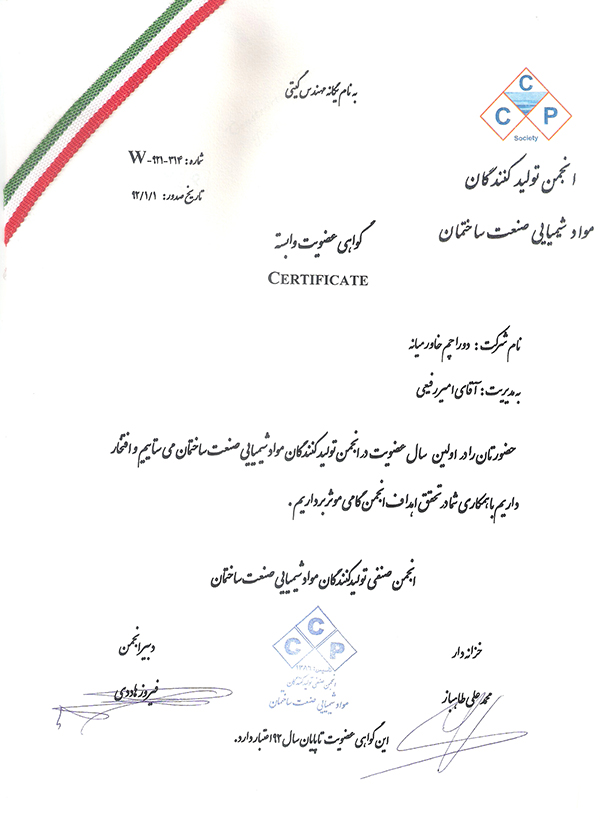 به نام یگانه مهندس گیتی
C
C P
Society
انجمن تولید کنندگان
مواد شیمیایی صنعت ساختمان
شماره: W-۹۲۱-۳۱۴
تاریخ صدور: ۹۲/۱/۱
گواهی عضویت وابسته
CERTIFICATE
نام شرکت: دوراچم خاورمیانه
به مدیریت: آقای امیر رفیعی
حضورتان را در اولین سال عضویت در انجمن تولید کنندگان مواد شیمیایی صنعت ساختمان می ستاییم و افتخار
داریم با همکاری شما در تحقق اهداف انجمن گامی موثر برداریم.
انجمن صنفی تولید کنندگان مواد شیمیایی صنعت ساختمان
C
C P
انجمن صنفی تولید کنندگان
مواد شیمیایی صنعت ساختمان
خزانه دار
محمد علی طاهباز
دبیر انجمن
فیروز هاددی
این گواهی عضویت تا پایان سال ۹۲ اعتبار دارد.